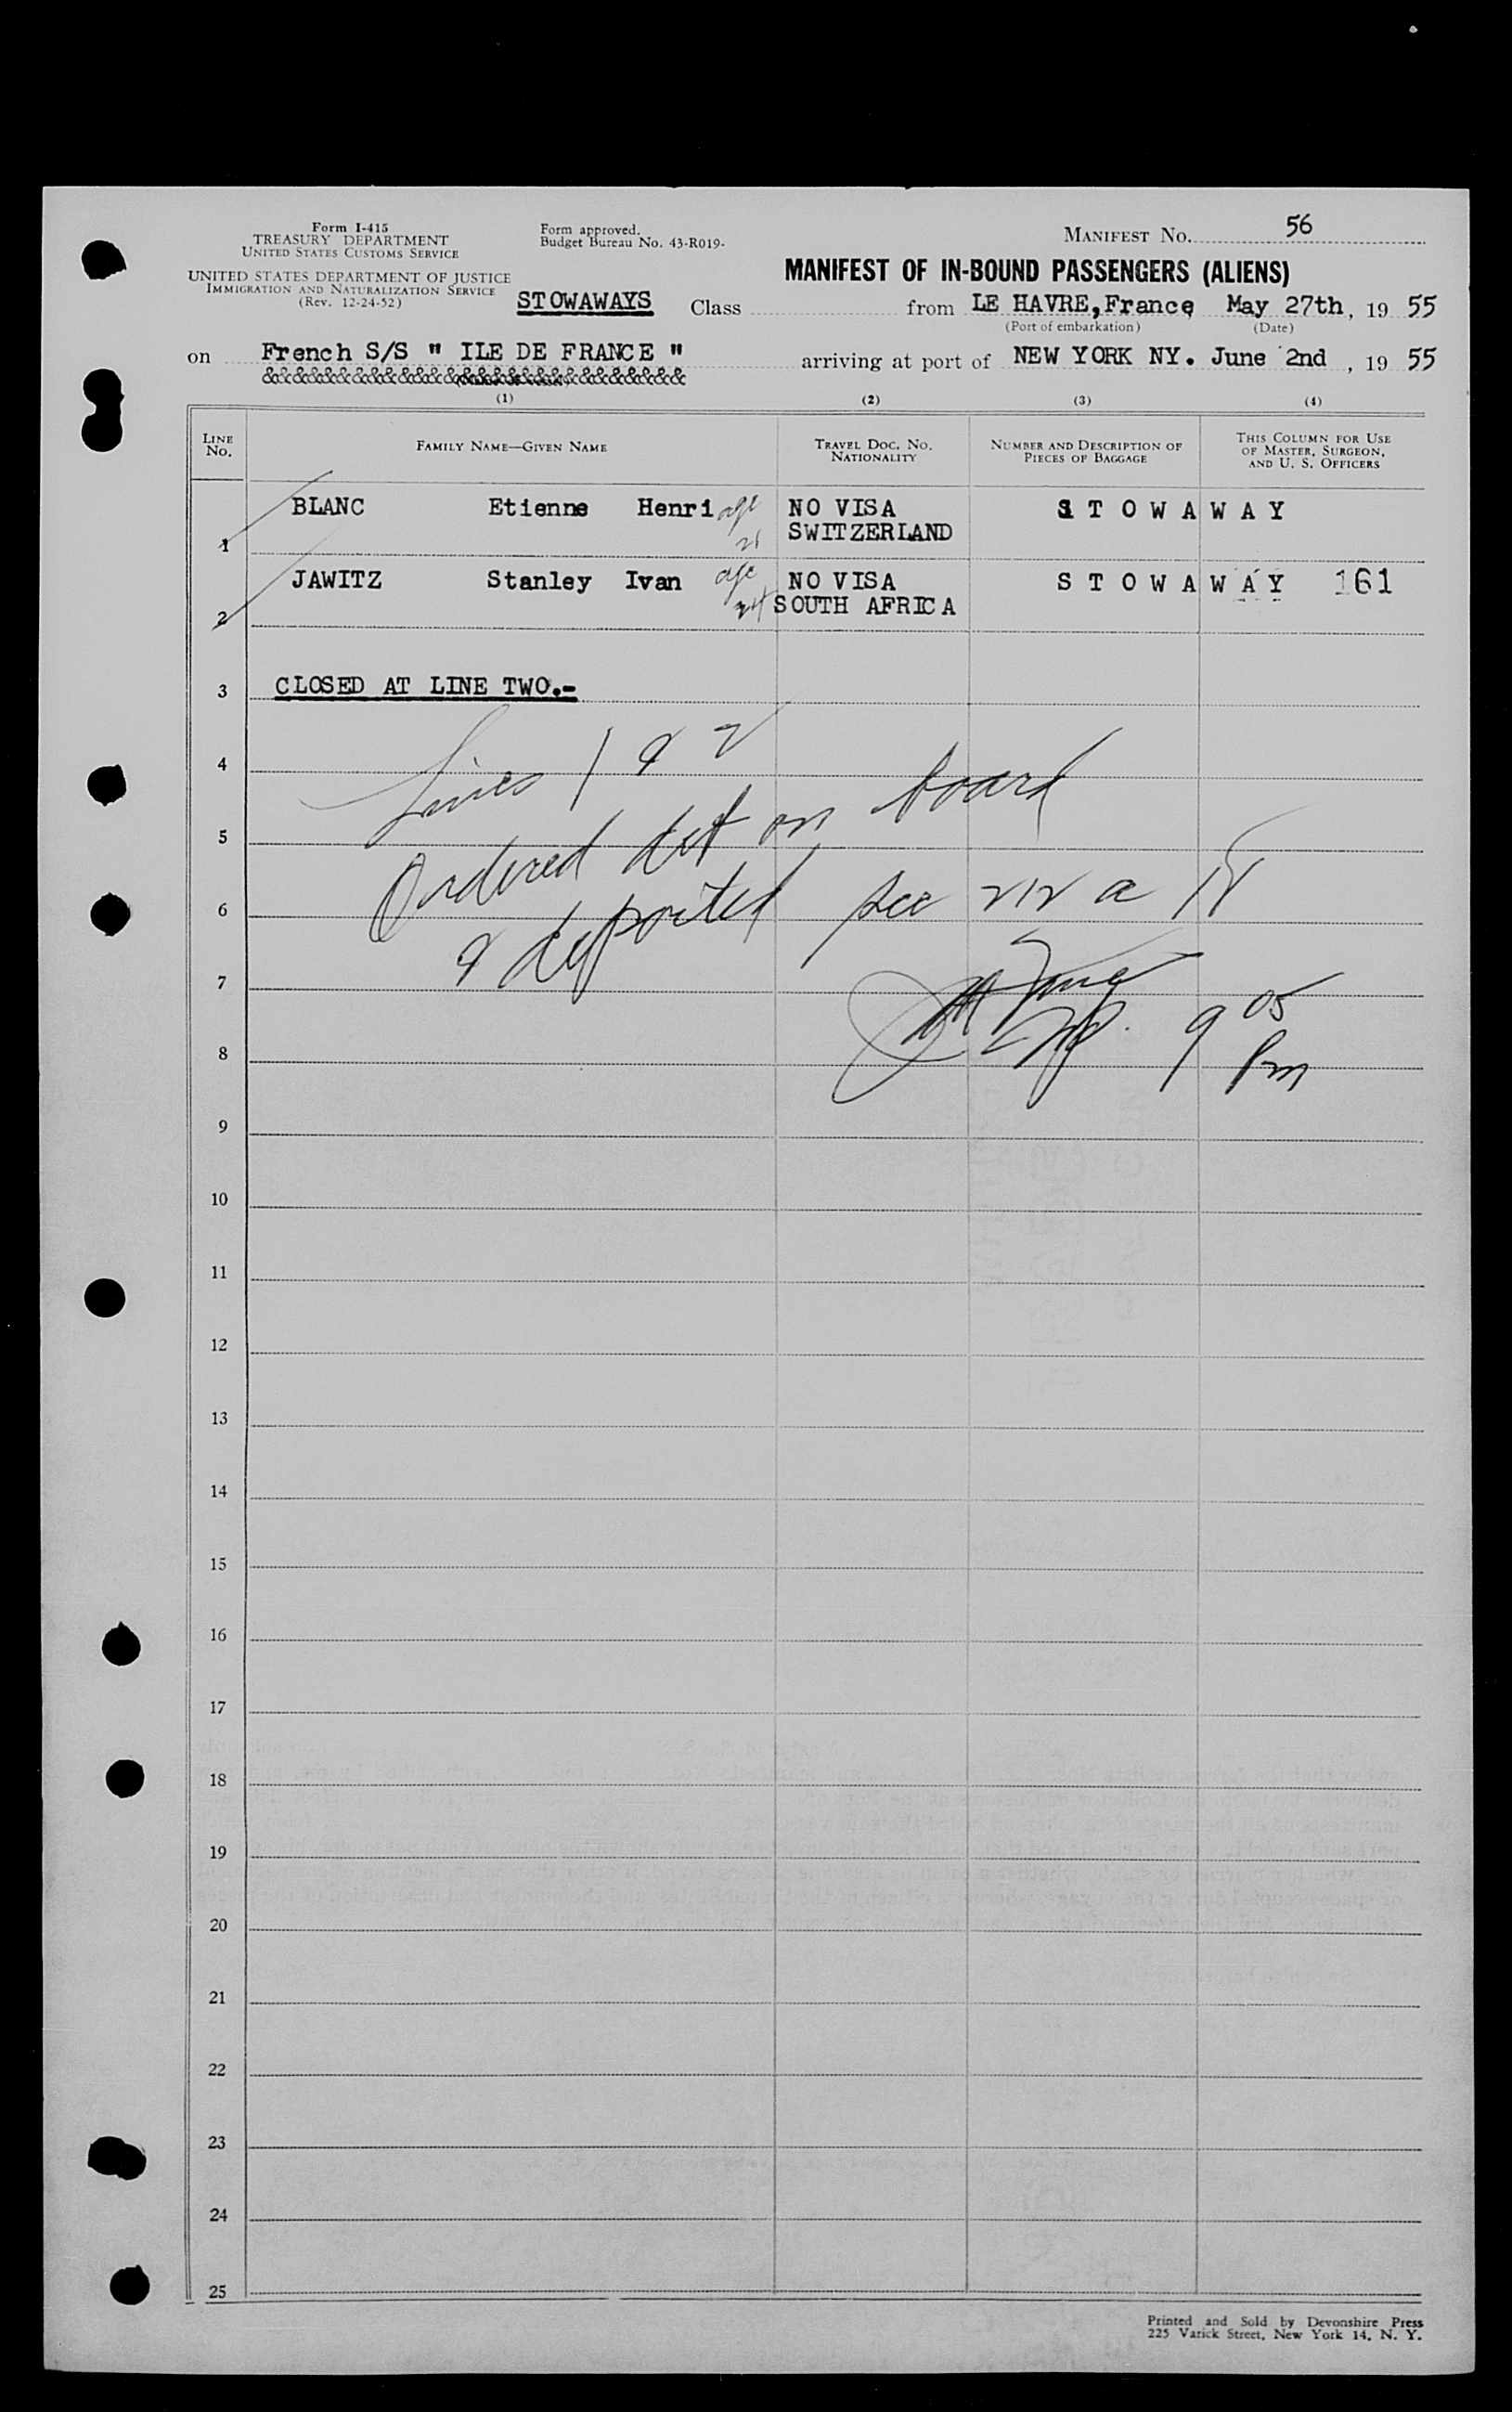 Form I-415
TREASURY DEPARTMENT
UNITED STATES CUSTOMS SERVICE
UNITED STATES DEPARTMENT OF JUSTICE
IMMIGRATION AND NATURALIZATION SERVICE
(Rev. 12-24-52)
Form approved.
Budget Bureau No. 43-R019-
MANIFEST NO. 56
MANIFEST OF IN-BOUND PASSENGERS (ALIENS)
STOWAWAYS Class from LE HAVRE, France May 27th, 19 55
(Port of embarkation) (Date)
on French S/S " ILE DE FRANCE " arriving at port of NEW YORK NY. June 2nd, 19 55
&&&&&&&&&&&&&&&&&&&&&&&&&&&&&
(1) (2) (3) (4)
LINE NO. FAMILY NAME—GIVEN NAME TRAVEL DOC. NO. NATIONALITY NUMBER AND DESCRIPTION OF PIECES OF BAGGAGE THIS COLUMN FOR USE OF MASTER, SURGEON, AND U. S. OFFICERS
1 BLANC Etienne Henri age 21 NO VISA SWITZERLAND S T O W A W A Y
2 JAWITZ Stanley Ivan age 24 NO VISA SOUTH AFRICA S T O W A W A Y 161
3 CLOSED AT LINE TWO.-
Lines 1 & 2
Ordered det on board
& deported see
9 05
Pm
4
5
6
7
8
9
10
11
12
13
14
15
16
17
18
19
20
21
22
23
24
25
Printed and Sold by Devonshire Press
225 Varick Street, New York 14, N. Y.